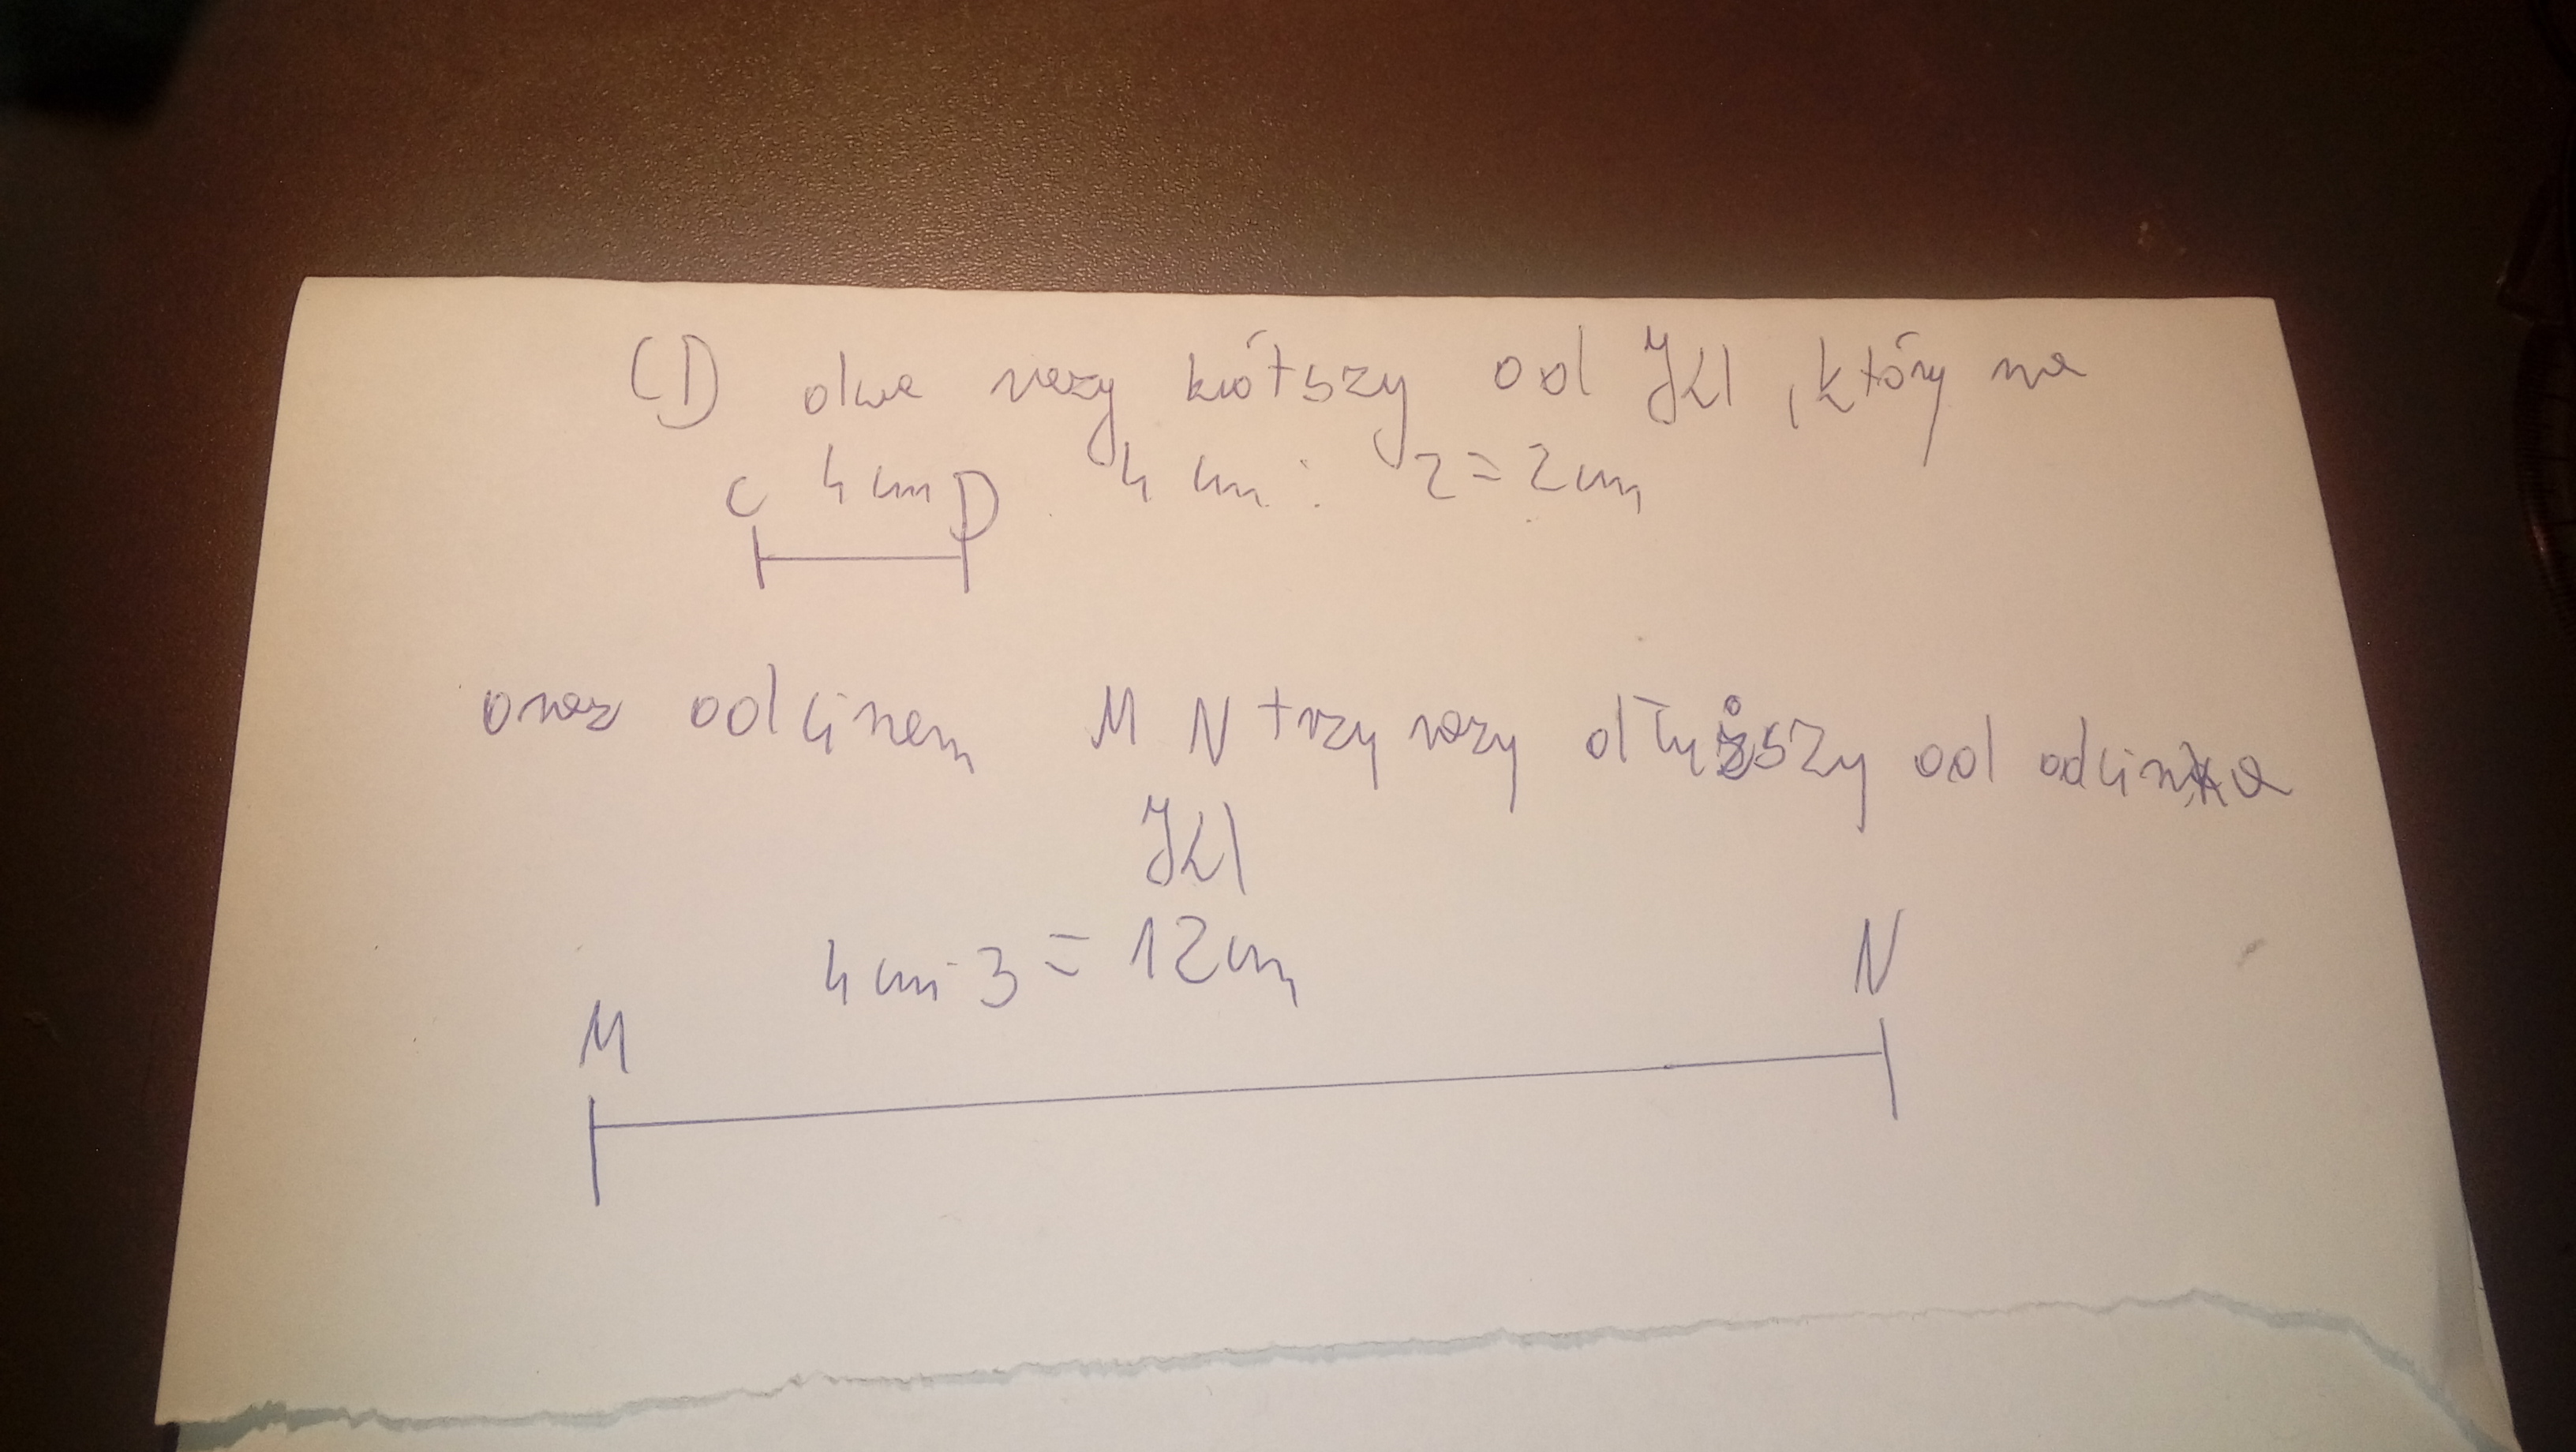 CD dwa razy krótszy od JKl, który ma
4 cm 4 cm : 2 = 2 cm
C D
oraz odcinem MN trzy razy dłyższy od odcinka
JKl
4 cm · 3 = 12 cm
M N